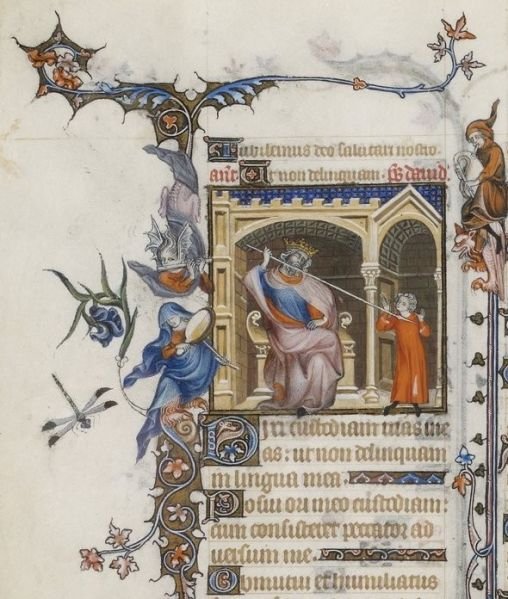 Iubilemus deo salutari nostro.
añt. Ut non delinquam. ps dauid
Dixi custodiam uias me
as: ut non delinquam
in lingua mea.
Posui ori meo custodiam:
cum consisteret peccator ad
uersum me.
Obmutui et humiliatus